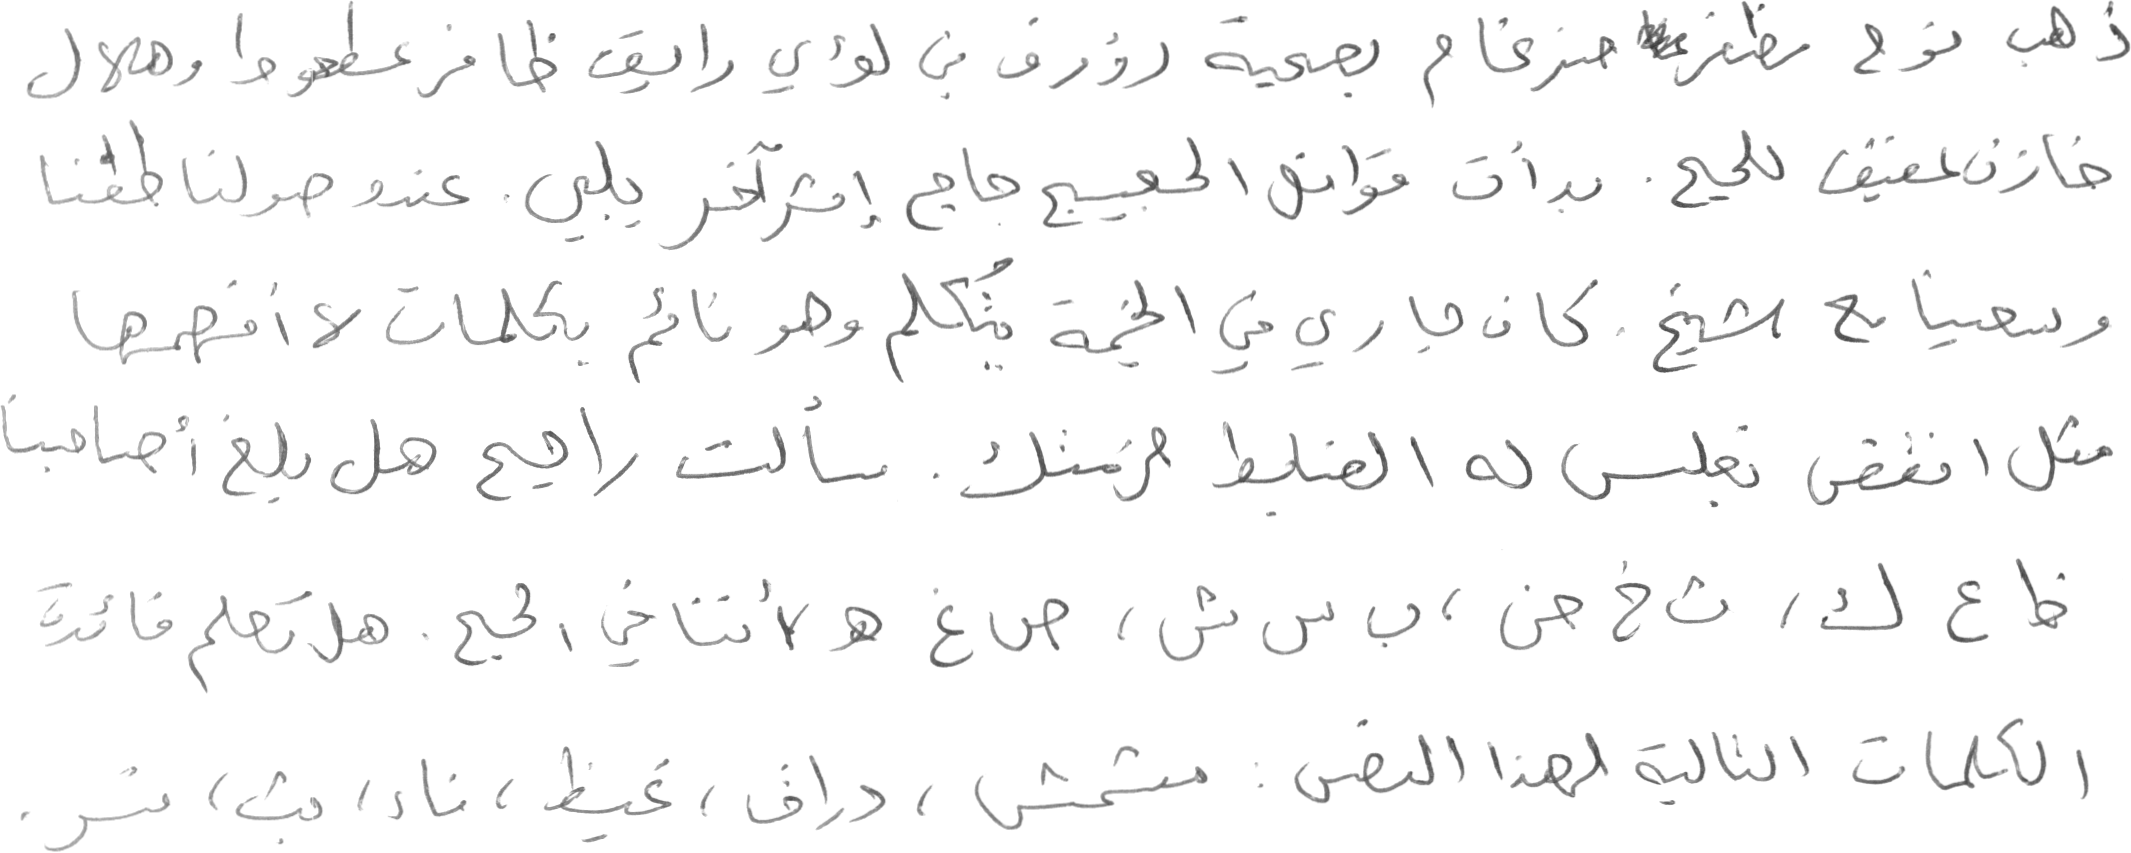 ذهب نوح مظفر ضرغام بصحبة رؤوف بن لؤي رايق ظافر عطعوط وهلال
خازن عفيف للحج. بدأت قوافل الحجيج حاج إثر آخر يلبي. عند وصولنا طفنا
وسعينا مع الشيخ. كان جاري في الخيمة يتكلم وهو نائم بكلمات لا أفهمها
مثل انقض تجلس له الضليط هزمتك. سألت راجح هل بلغ أصاحبنا
ظ ع ك، ث خ ض، ب س ش، ص غ ه لأننا في الحج. هل تعلم فائدة
الكلمات التالية لهذا النص: مشمش، دراق، غيظ، ناء، بث، شر.